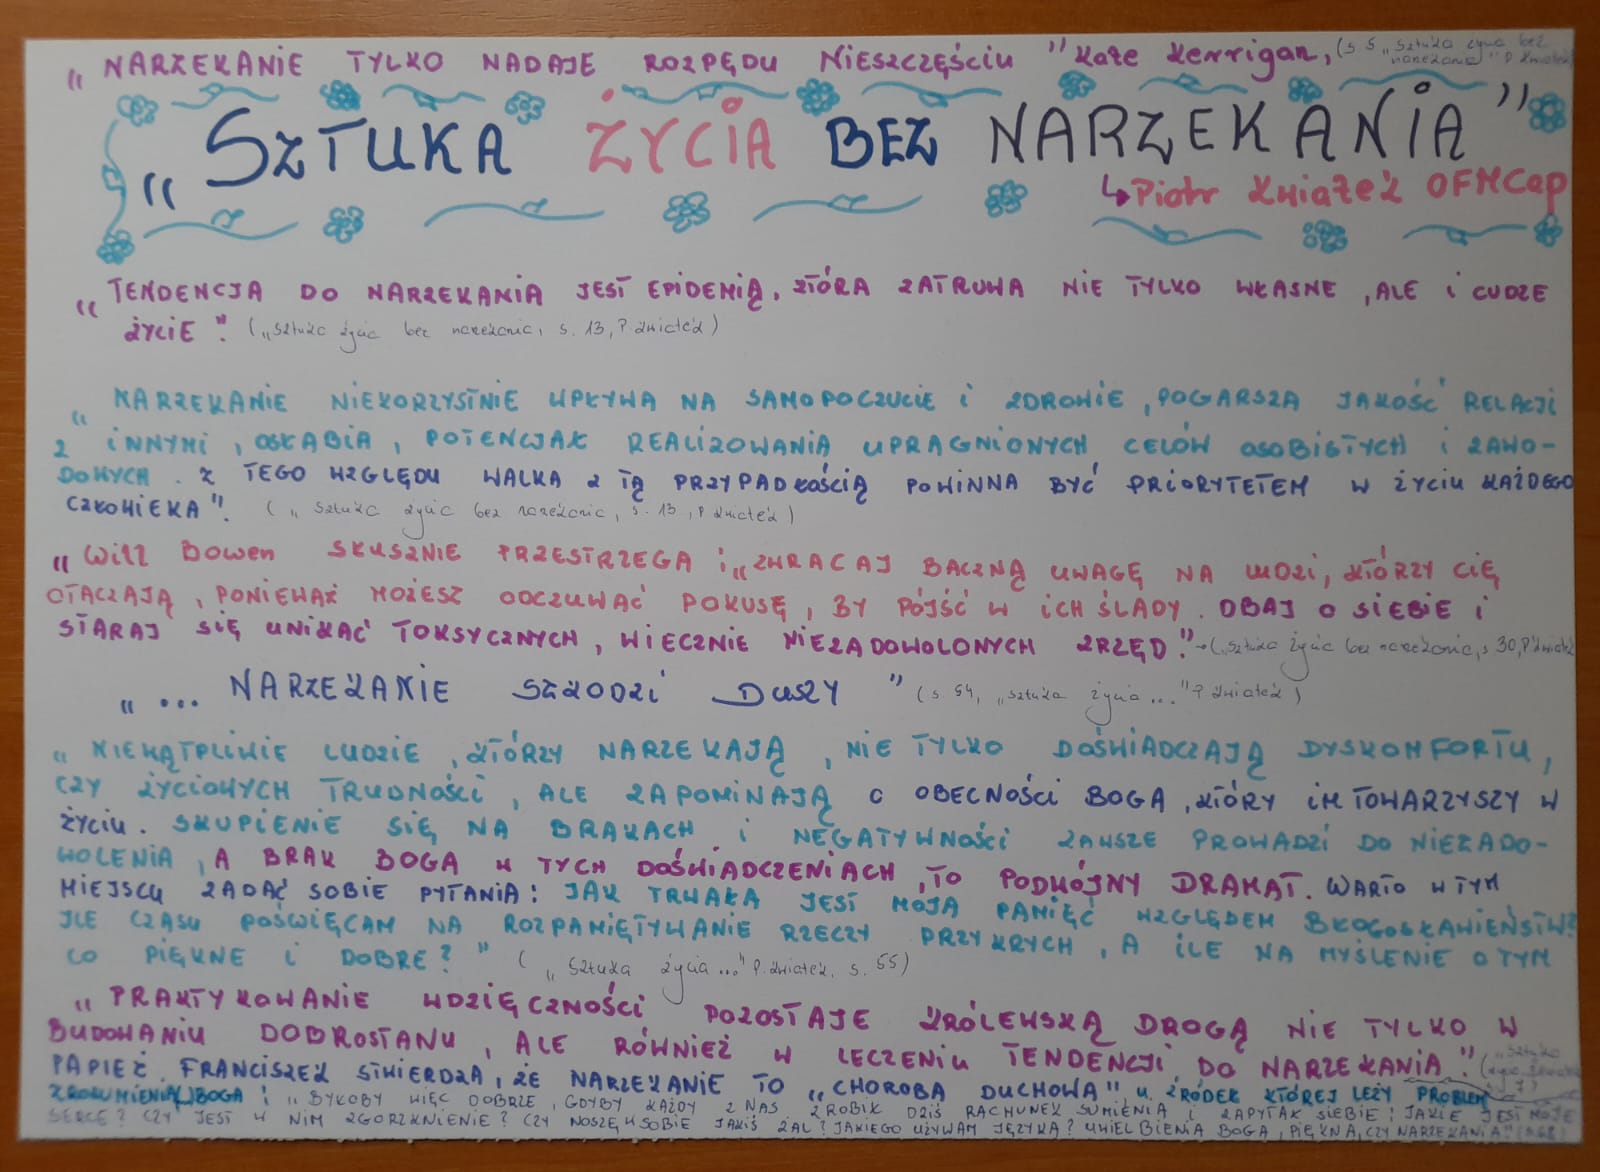 „NARZEKANIE TYLKO NADAJE ROZPĘDU NIESZCZĘŚCIU" Kate Kerrigan, (s. 5 „Sztuka życia bez narzekania" P Kwiatek)
„SZTUKA ŻYCIA BEZ NARZEKANIA"
↳ Piotr Kwiatek OFMCap
„TENDENCJA DO NARZEKANIA JEST EPIDEMIĄ, KTÓRA ZATRUWA NIE TYLKO WŁASNE, ALE I CUDZE
ŻYCIE". („Sztuka życia bez narzekania, s. 13, P Kwiatek)
„NARZEKANIE NIEKORZYSTNIE WPŁYWA NA SAMOPOCZUCIE I ZDROWIE, POGARSZA JAKOŚĆ RELACJI
Z INNYMI, OSŁABIA, POTENCJAŁ REALIZOWANIA UPRAGNIONYCH CELÓW OSOBISTYCH I ZAWO-
DOWYCH. Z TEGO WZGLĘDU WALKA Z TĄ PRZYPADŁOŚCIĄ POWINNA BYĆ PRIORYTETEM W ŻYCIU KAŻDEGO
CZŁOWIEKA". („Sztuka życia bez narzekania, s. 13, P Kwiatek)
„Will Bowen SŁUSZNIE PRZESTRZEGA: „ZWRACAJ BACZNĄ UWAGĘ NA LUDZI, KTÓRZY CIĘ
OTACZAJĄ, PONIEWAŻ MOŻESZ ODCZUWAĆ POKUSĘ, BY PÓJŚĆ W ICH ŚLADY. DBAJ O SIEBIE I
STARAJ SIĘ UNIKAĆ TOKSYCZNYCH, WIECZNIE NIEZADOWOLONYCH ZRZĘD". → („Sztuka życia bez narzekania, s 30, P Kwiatek
„... NARZEKANIE SZKODZI DUSZY" (s. 54, „Sztuka życia..." P Kwiatek)
„NIEWĄTPLIWIE LUDZIE, KTÓRZY NARZEKAJĄ, NIE TYLKO DOŚWIADCZAJĄ DYSKOMFORTU,
CZY ŻYCIOWYCH TRUDNOŚCI, ALE ZAPOMINAJĄ O OBECNOŚCI BOGA, KTÓRY IM TOWARZYSZY W
ŻYCIU. SKUPIENIE SIĘ NA BRAKACH I NEGATYWNOŚCI ZAWSZE PROWADZI DO NIEZADO-
WOLENIA, A BRAK BOGA W TYCH DOŚWIADCZENIACH, TO PODWÓJNY DRAMAT. WARTO W TYM
MIEJSCU ZADAĆ SOBIE PYTANIA: JAK TRWAŁA JEST MOJA PAMIĘĆ WZGLĘDEM BŁOGOSŁAWIEŃSTW?
ILE CZASU POŚWIĘCAM NA ROZPAMIĘTYWANIE RZECZY PRZYKRYCH, A ILE NA MYŚLENIE O TYM
CO PIĘKNE I DOBRE?" („Sztuka życia..." P. Kwiatek, s. 55)
„PRAKTYKOWANIE WDZIĘCZNOŚCI POZOSTAJE KRÓLEWSKĄ DROGĄ NIE TYLKO W
BUDOWANIU DOBROSTANU, ALE RÓWNIEŻ W LECZENIU TENDENCJI DO NARZEKANIA". („Sztuka
PAPIEŻ FRANCISZEK STWIERDZA, ŻE NARZEKANIE TO „CHOROBA DUCHOWA", U ŹRÓDEŁ KTÓREJ LEŻY PROBLEM
ZROZUMIENIA BOGA: „BYŁOBY WIĘC DOBRZE, GDYBY KAŻDY Z NAS ZROBIŁ DZIŚ RACHUNEK SUMIENIA I ZAPYTAŁ SIEBIE: JAKIE JEST MOJE
SERCE? CZY JEST W NIM ZGORZKNIENIE? CZY NOSZĘ W SOBIE JAKIŚ ŻAL? JAKIEGO UŻYWAM JĘZYKA? UWIELBIENIA BOGA, PIĘKNA, CZY NARZEKANIA"